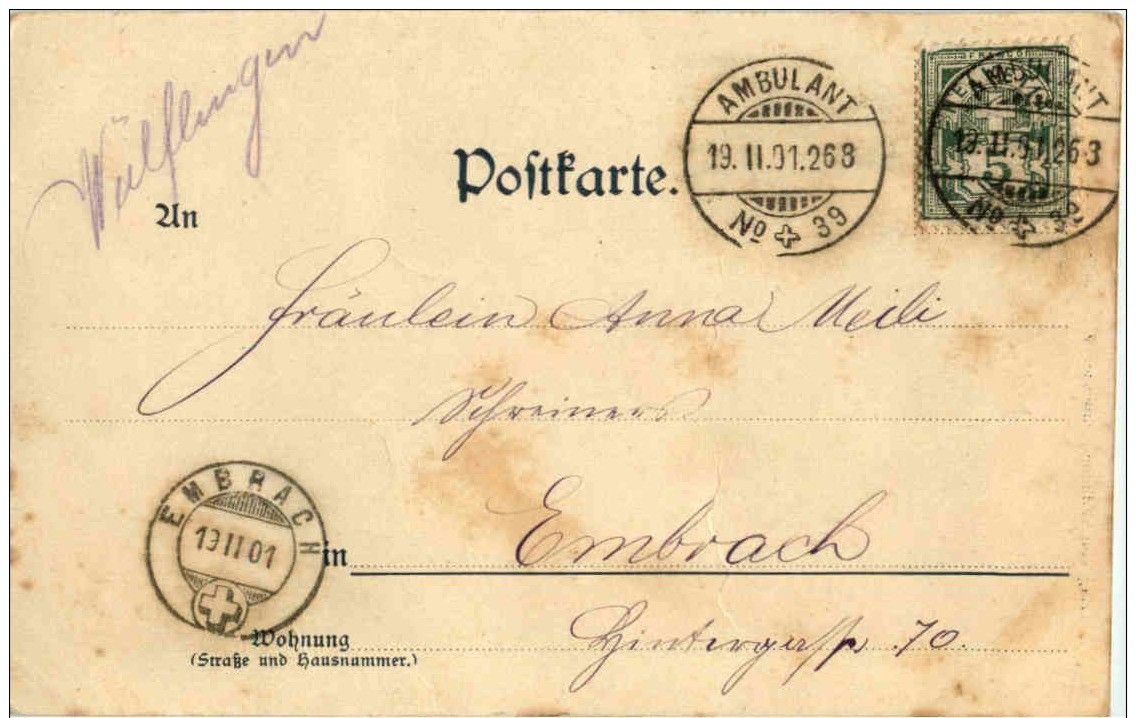 Wülflingen
AMBULANT
19.II.01.268
No 39
FRANCO
AMBULANT
19.II.01.268
No 39
5
Postkarte.
An
Fräulein Anna Meili
Schreiners
EMBRACH
19 II 01
in Embrach
Wohnung
(Straße und Hausnummer.)
Hintergasse 70.